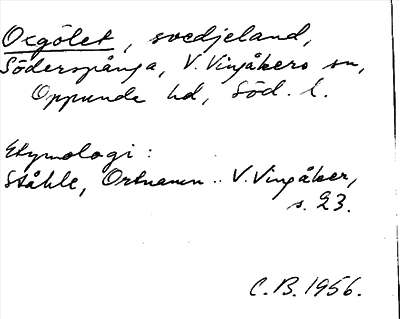 Oxgölet, svedjeland,
Söderspånga, V. Vingåkers sn,
Oppunda hd, Söd. l.
Etymologi:
Ståhle, Ortnamn.. V. Vingåker,
s. 23.
C.B. 1956.